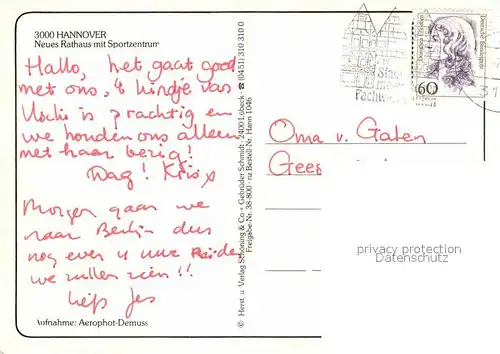 3000 HANNOVER
Neues Rathaus mit Sportzentrum
Hallo, het gaat good
met ons, 't kindje van
Uschi is prachtig en
we houden ons alleen
met haar bezig!
Dag! Kris x
Morgen gaan we
naar Berlin dus
nog even u uur rijden
we zullen zien!!
liefs Jes
Aufnahme: Aerophot-Demuss
© Herst. u. Verlag Schöning & Co + Gebrüder Schmidt, 2400 Lübeck ☎ (0451) 310 310 0
Freigabe-Nr. 38-800 · nz Bestell-Nr. Hann 1046
Stadt
Fachwerk
Dorothea Erxleben
Deutsche Bundespost
60
Oma v. Gaten
Gees
privacy protection
DATENSCHUTZ